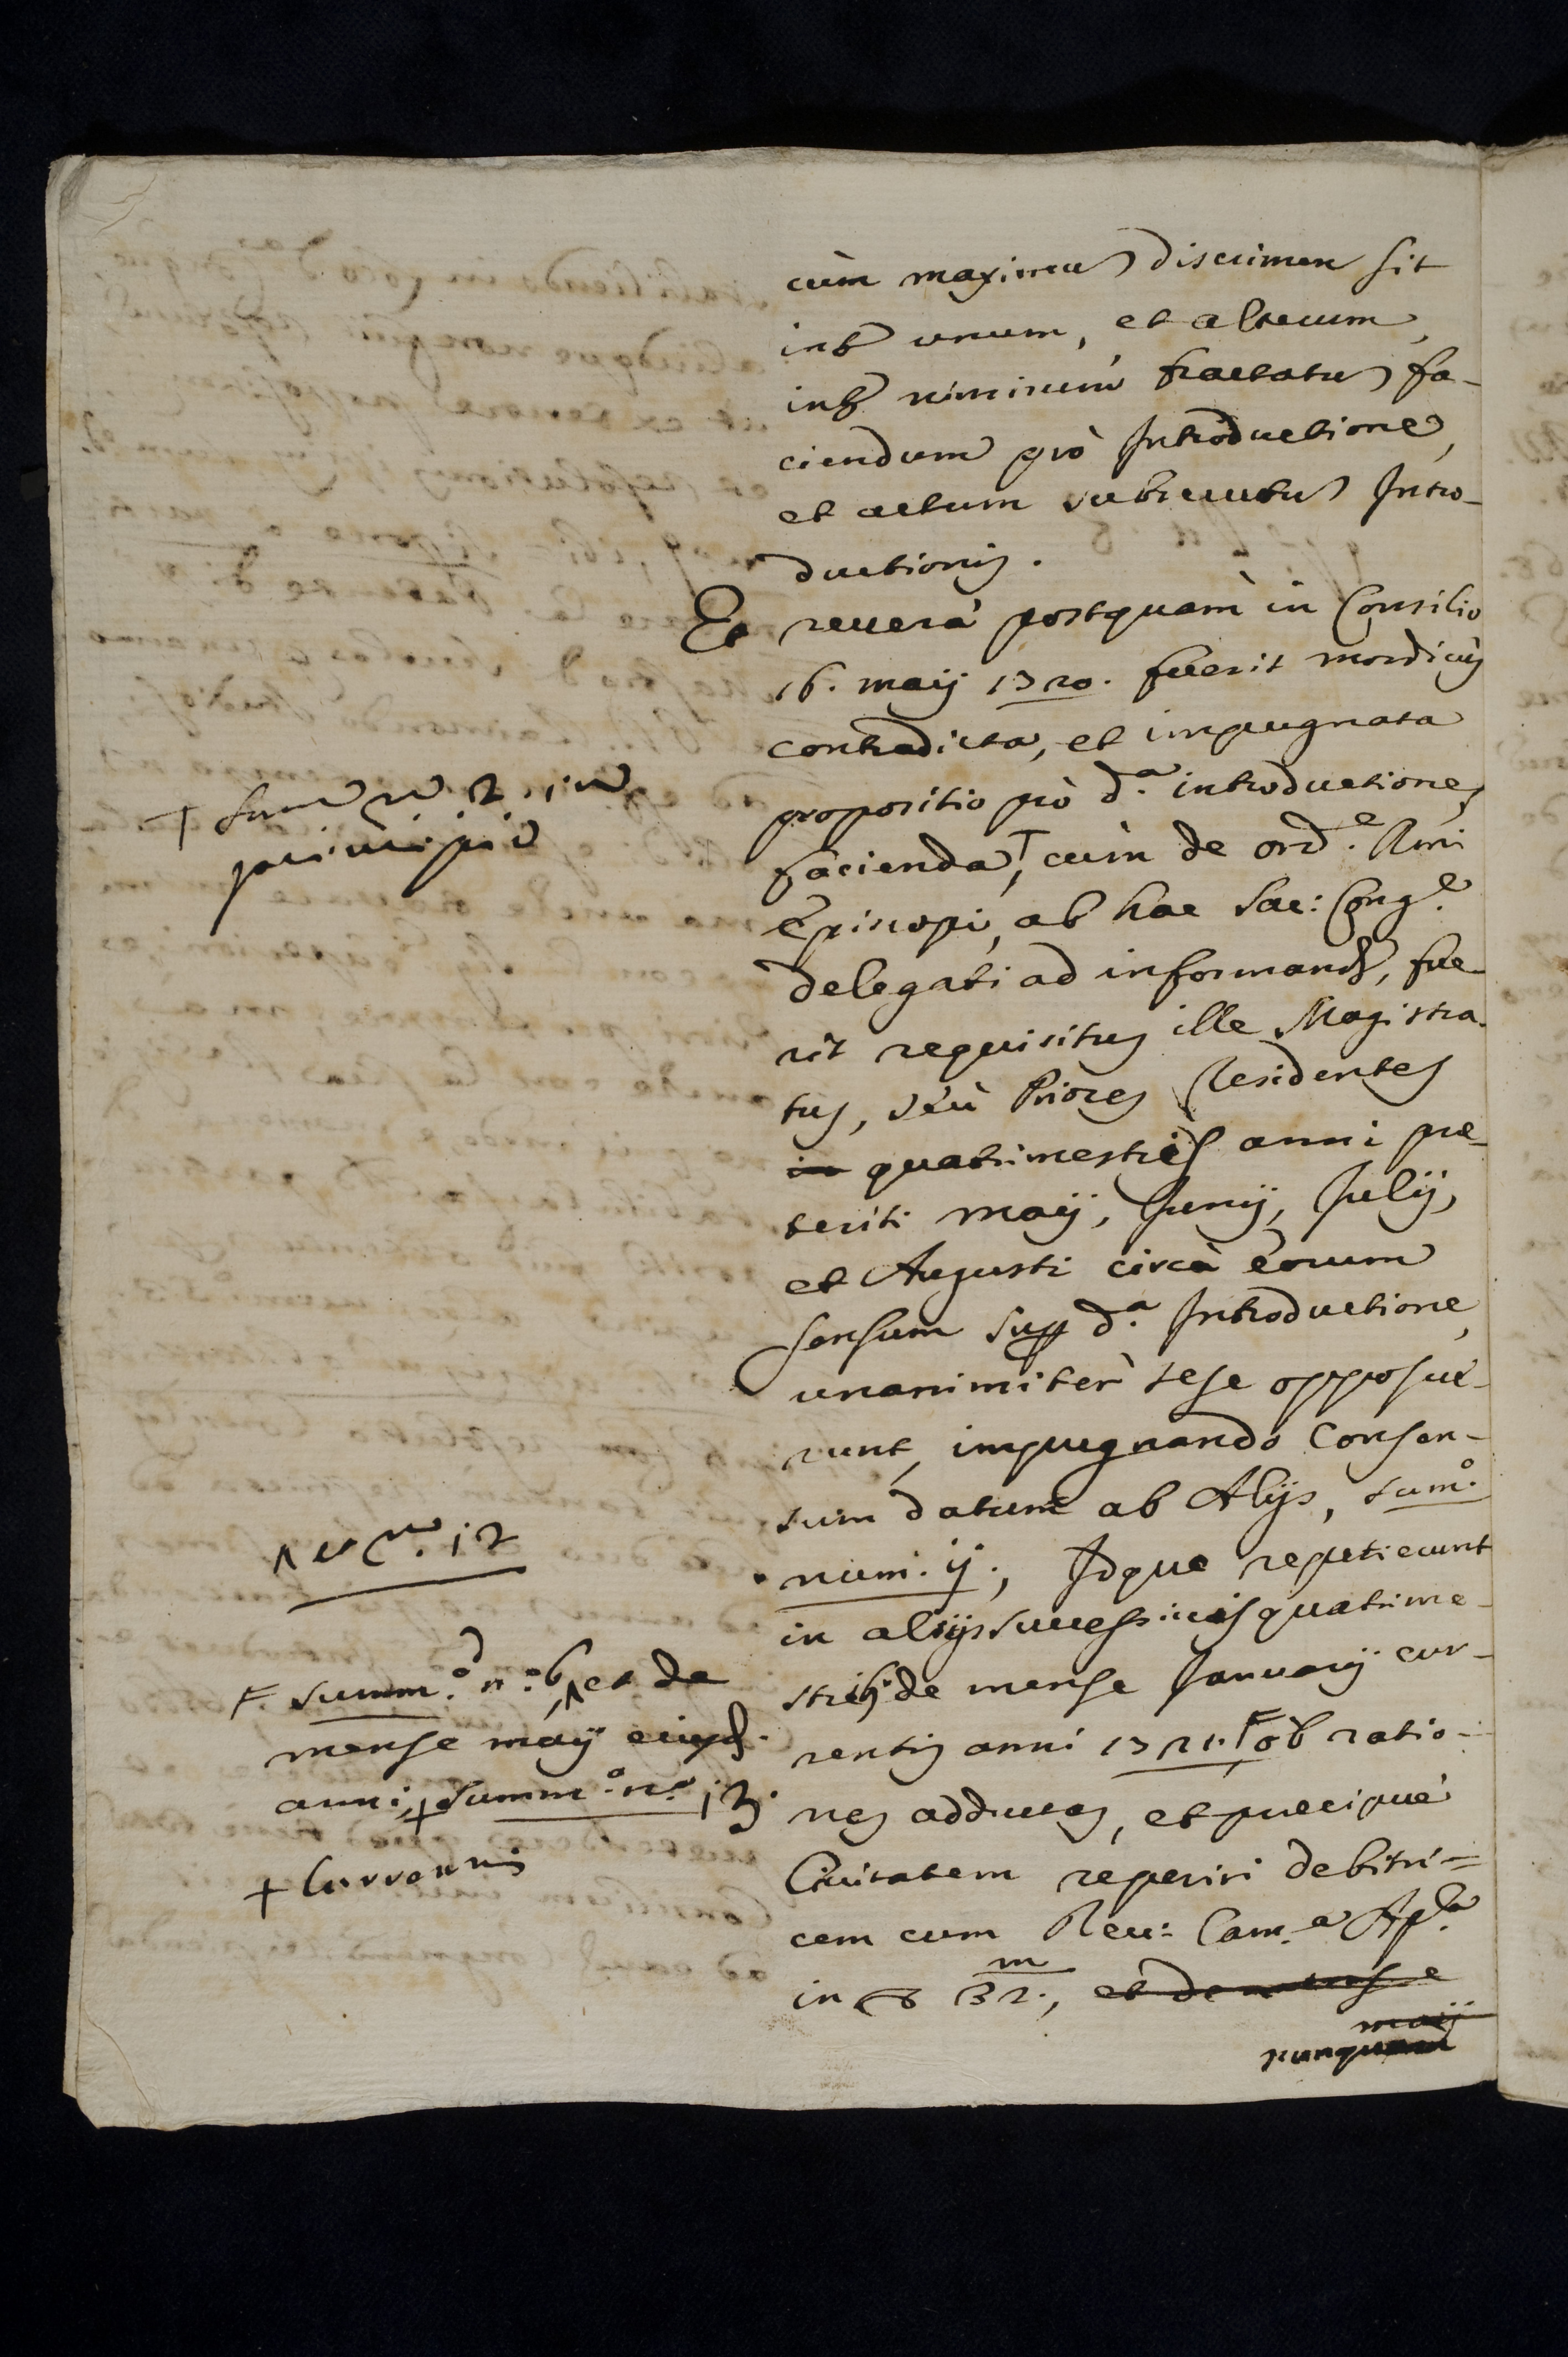 cùm maximu) discrimen sit
int unum, et alterum,
int nimirum tractatu) fa-
ciendum prò Introductione,
et actum subsecutu) Intro-
ductionis.
Et reverà postquam in Consilio
16. maij 1720. fuerit mordicus
contradicta, et impugnata
propositio prò d.a introductione
facienda, cùm de ord.e Rmi
Episcopi, ab hac Sac: Cong.e
delegati ad informand, fue-
rit requisitus ille Magistra-
tus, seù Priores Residentes
in quatrimestri anni præ-
teriti maij, Junij, Julij,
et Augusti circà eorum
sensum supp d.a Introductione,
unanimitèr sese opposue-
runt, impugnando Consen-
sum datum ab Alijs, sum.o
num. ij., Idque repetierunt
in alijs successivis quatrime-
strib. de mense Januarij cur-
rentis anni 1721. ob ratio-
nes adductas, et præcipuè
Civitatem reperiri debitri=
cem cum Rev: Cam.a Ap.la
in 32.m, et de mense
maij
nunquam
+ Sum n 2. in
principio
12
F summ.o n.o 6 et de
mense maij eiusd.
anni, + summ.o n.o 13.
+ Currentis